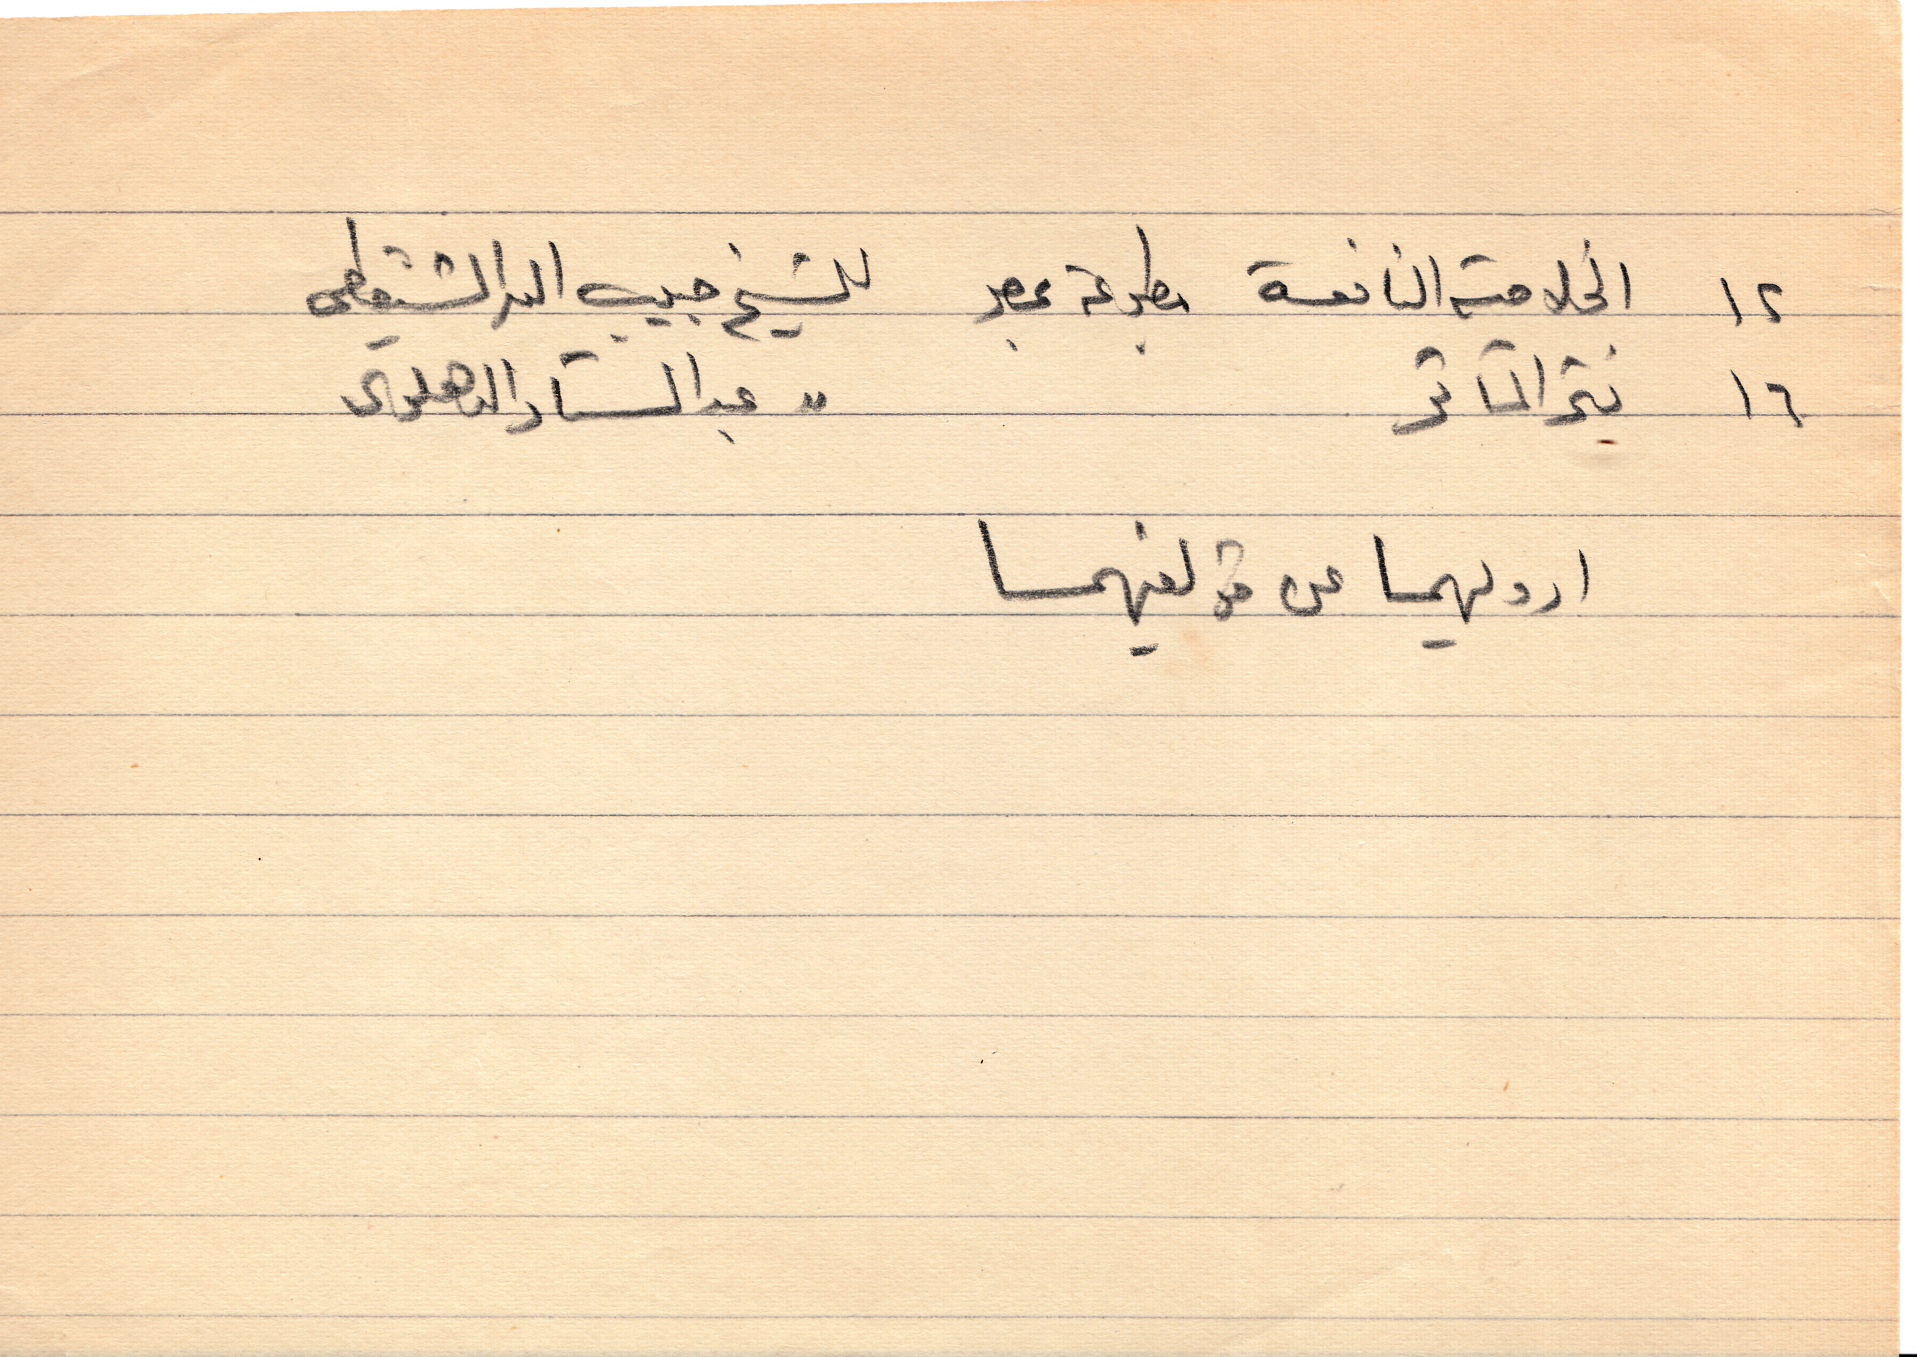 ١٢ الخلاصة النافعة مطبوعة بمصر للشيخ حبيب الله الشنقيطي
١٦ نثر المآثر " عبد الستار الدهلوى
ارويهما عن مؤلفيهما